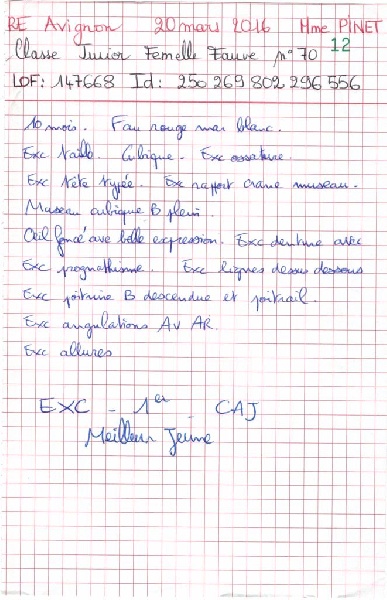 RE Avignon 20 mars 2016 Mme PINET
Classe Junior Femelle Fauve n° 70 12
LOF: 147668 Id: 250 269 802 296 556
10 mois. Fau rouge mar blanc.
Exc taille. Cubique. Exc ossature.
Exc tête typée. Exc rapport crane museau.
Museau cubique B plein
Oeil foncé ave belle expression. Exc denture avec
Exc prognathisme. Exc lignes dessus dessous
Exc poitrine B descendue et poitrail.
Exc angulations AV AR.
Exc allures
EXC - 1er - CAJ
Meilleur Jeune